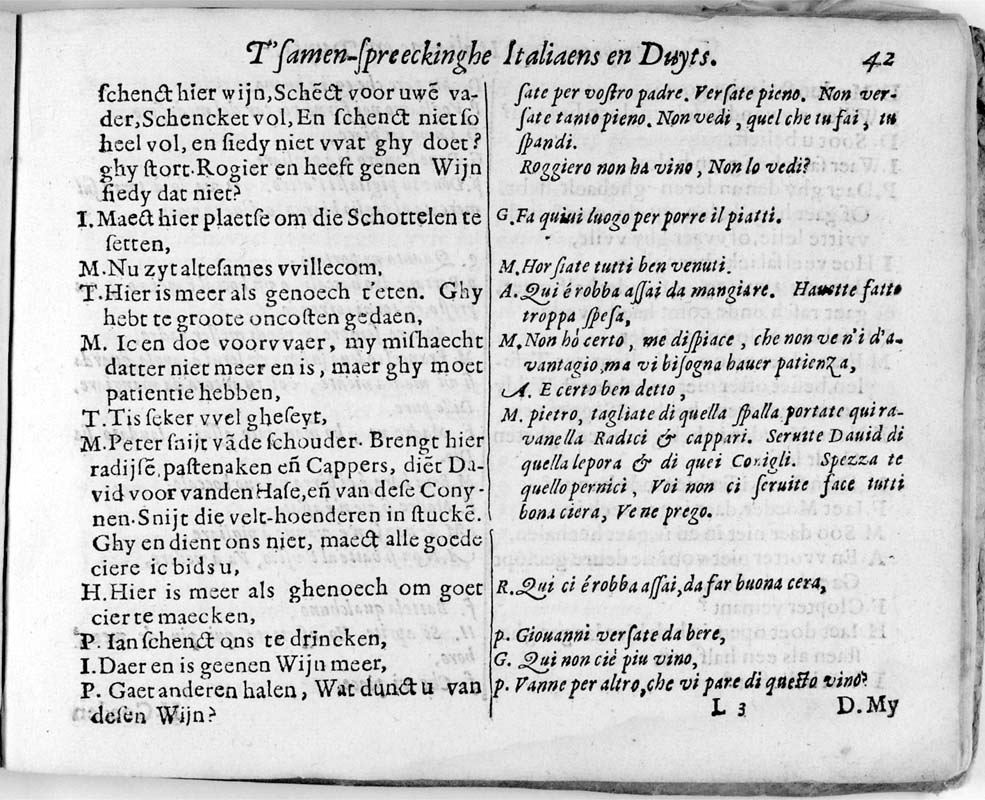 T'samen-spreeckinghe Italiaens en Duyts. 42
schenct hier wijn, Schēct voor uwē va-
der, Schencket vol, En schenct niet so
heel vol, en siedy niet vvat ghy doet?
ghy stort. Rogier en heeft genen Wijn
siedy dat niet?
I. Maect hier plaetse om die Schottelen te
setten,
M. Nu zyt altesames vvillecom,
T. Hier is meer als genoech t'eten. Ghy
hebt te groote oncosten gedaen,
M. Ic en doe voorvvaer, my mishaecht
datter niet meer en is, maer ghy moet
patientie hebben,
T. Tis seker vvel gheseyt,
M. Peter snijt vāde schouder. Brengt hier
radijsē, pastenaken eñ Cappers, diēt Da-
vid voor vanden Hase, eñ van dese Cony-
nen. Snijt die velt-hoenderen in stuckē.
Ghy en dient ons niet, maect alle goede
ciere ic bids u,
H. Hier is meer als ghenoech om goet
cier te maecken,
P. Ian schenct ons te drincken,
I. Daer en is geenen Wijn meer,
P. Gaet anderen halen, Wat dunct u van
desen Wijn?
sate per vostro padre. Versate pieno. Non ver-
sate tanto pieno. Non vedi, quel che tu fai, tu
spandi.
Roggiero non ha vino, Non lo vedi?
G. Fa quiui luogo per porre il piatti.
M. Hor siate tutti ben venuti.
A. Qui é robba assai da mangiare. Hauette fatto
troppa spesa,
M. Non hò certo, me dispiace, che non ve n'i d'a-
vantagio, ma vi bisogna hauer patienza,
A. E certo ben detto,
M. pietro, tagliate di quella spalla portate qui ra-
vanella Radici & cappari. Seruite Dauid di
quella lepora & di quei Conigli. Spezza te
quello pernici, Voi non ci seruite face tutti
bona ciera, Ve ne prego.
R. Qui ci é robba assai, da far buona cera,
p. Giouanni versate da bere,
G. Qui non cié piu vino,
p. Vanne per altro, che vi pare di questo vino?
L 3 D. My